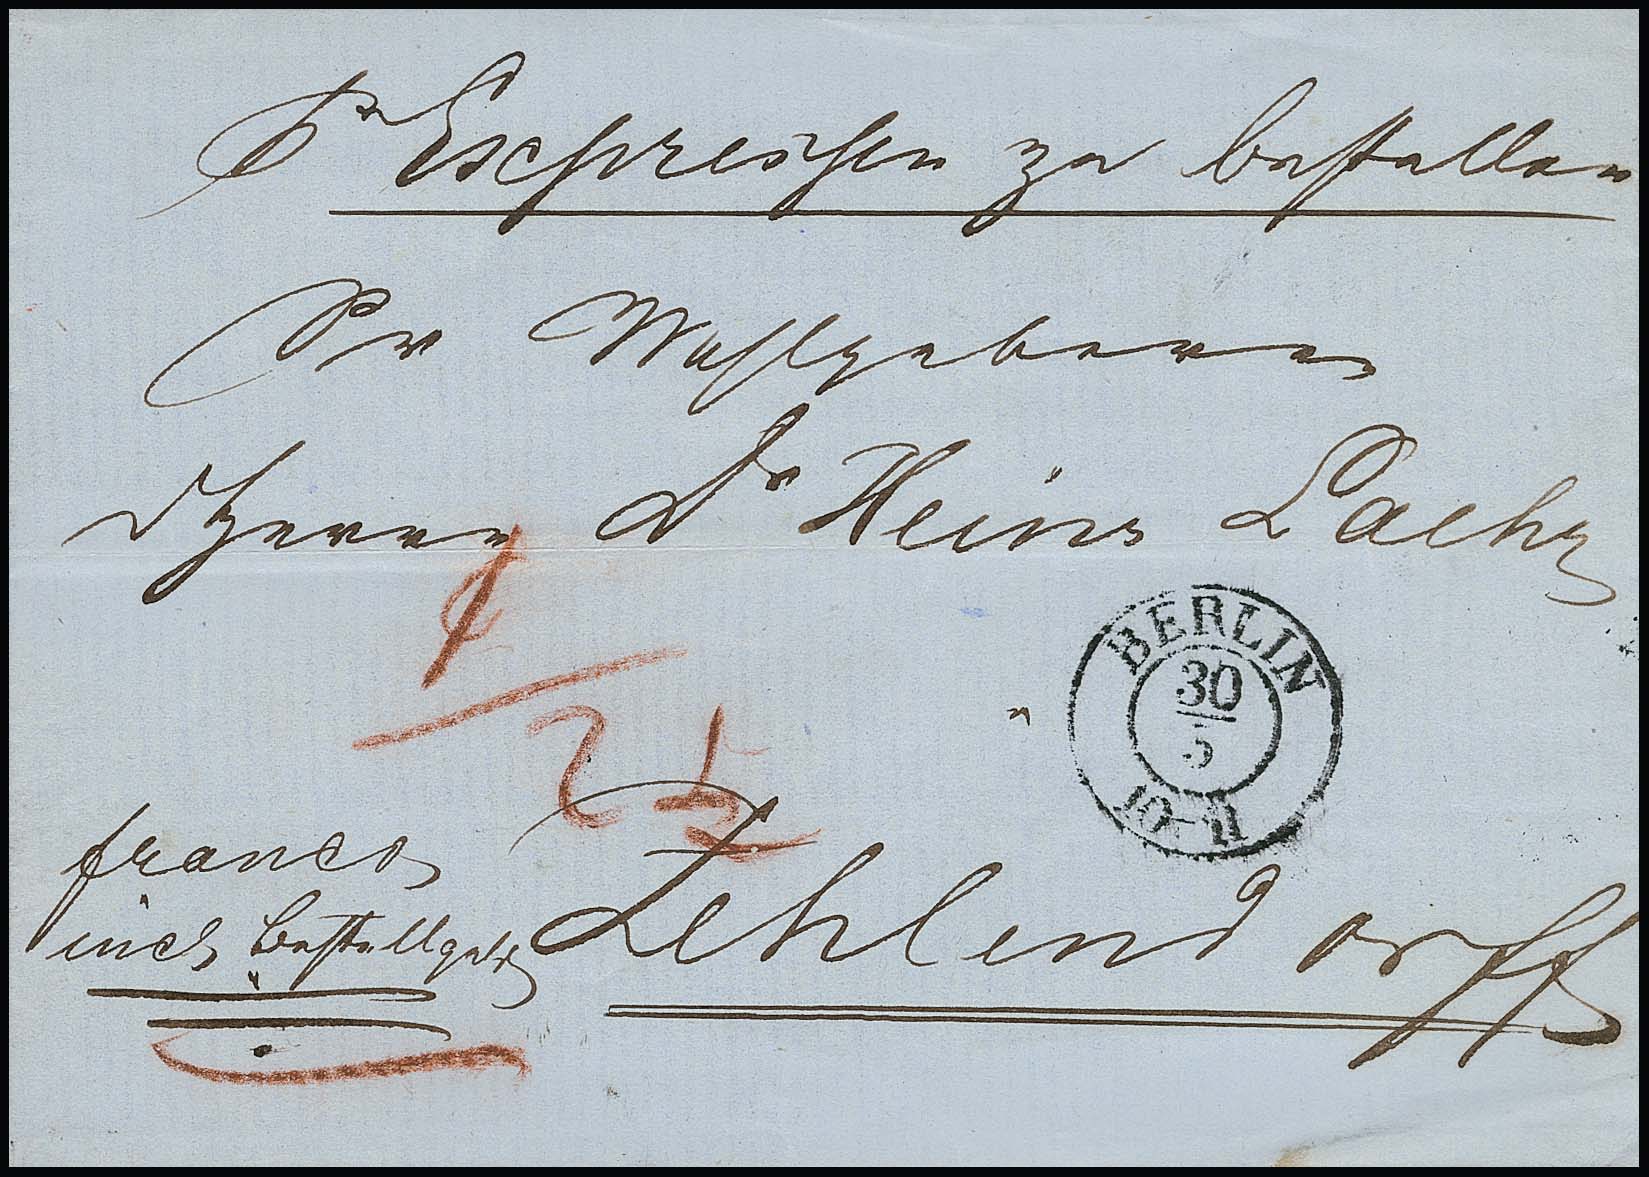 Pr Expressen zu bestellen
Sr Wohlgeboren
Herrn Dr Heinr Laehr
BERLIN
30
5
franco
incl. Bestellgeld
Zehlendorff